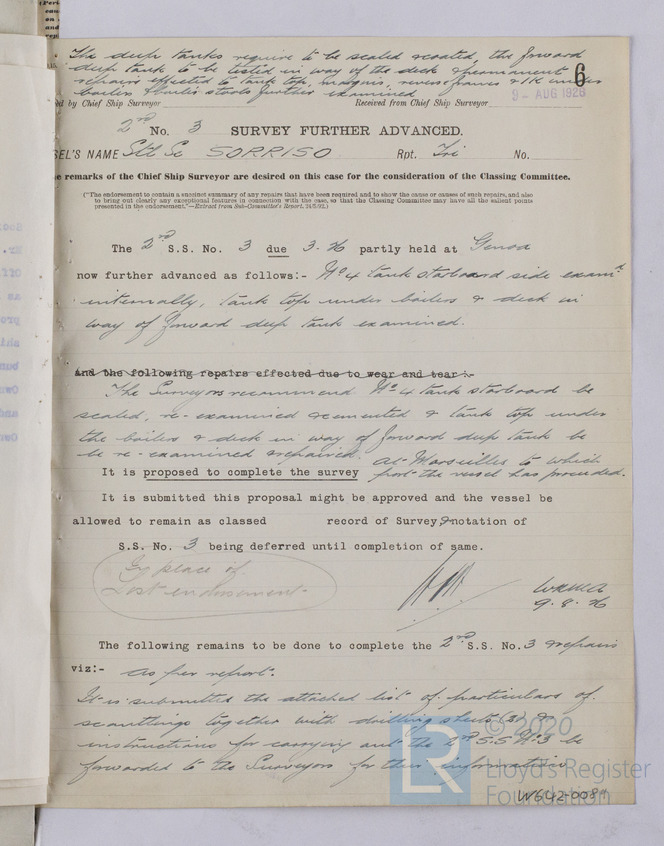 The deep tanks require to be scaled & coated, the forward
deep tank to be tested in way of the deck & permanent
repairs effected to tank top, margin, reverse frames & under
boilers & boiler stools further examined
6
ed by Chief Ship Surveyor Received from Chief Ship Surveyor
9- AUG 1926
2nd No. 3 SURVEY FURTHER ADVANCED.
SEL'S NAME Stl Sc SORRISO Rpt. Tri No.
e remarks of the Chief Ship Surveyor are desired on this case for the consideration of the Classing Committee.
("The endorsement to contain a succinct summary of any repairs that have been required and to show the cause or causes of such repairs, and also
to bring out clearly any exceptional features in connection with the case, so that the Classing Committee may have all the salient points
presented in the endorsement."—Extract from Sub-Committee's Report,
The 2nd S.S. No. 3 due 3.26 partly held at Genoa
now further advanced as follows:- No 4 tank starboard side examd
internally, tank top under boilers & deck in
way of forward deep tank examined.
and the following repairs effected due to wear and tear:-
The Surveyors recommend No 4 tank starboard be
scaled, re-examined & cemented & tank top under
the boilers & deck in way of forward deep tank be
be re-examined & repaired.
It is proposed to complete the survey at Marseilles to which
port the vessel has proceeded.
It is submitted this proposal might be approved and the vessel be
allowed to remain as classed record of Survey & notation of
S.S. No. 3 being deferred until completion of same.
In place of
Lost endorsement.
9.8.26
The following remains to be done to complete the 2nd S.S. No. 3 & repairs
viz:- as per report.
It is submitted the attached list of particulars of
scantlings together with drilling sheets (3) &
instructions for carrying out the 2nd S.S. No 3 be
forwarded to the Surveyors for their information
© 2020
LR
Lloyd's Register
Foundation
W642-0084